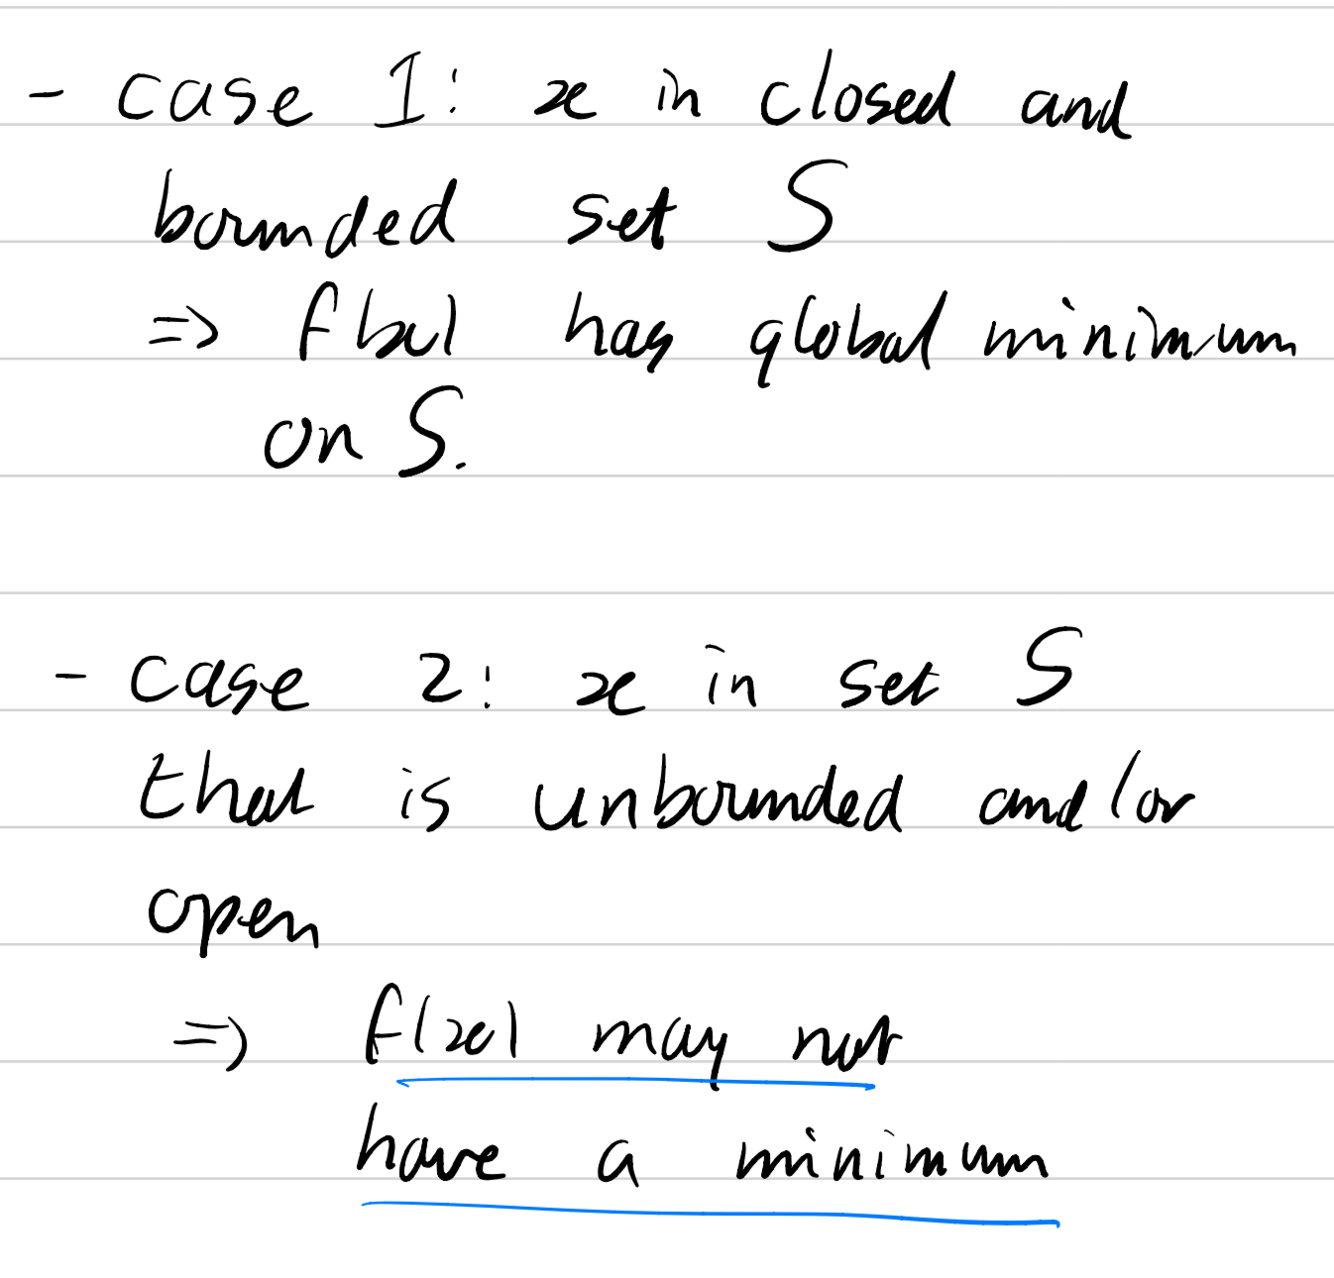 - case 1: x in closed and
bounded set S
=> f(x) has global minimum
on S.
- case 2: x in set S
that is unbounded and/or
open
=> f(x) may not
have a minimum